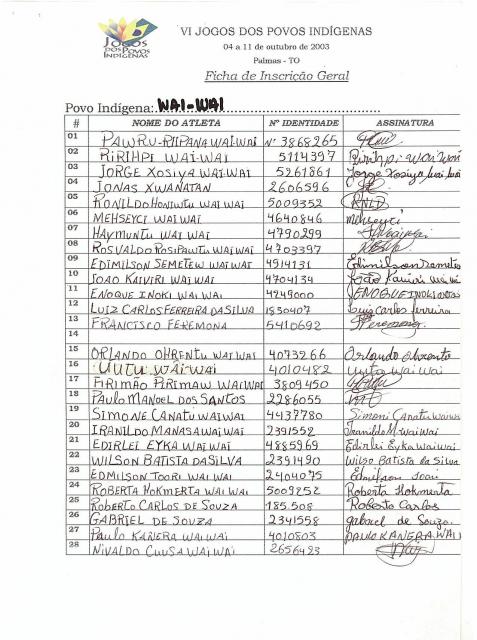 JOGOS
DOS POVOS
INDÍGENAS
VI JOGOS DOS POVOS INDÍGENAS
04 a 11 de outubro de 2003
Palmas - TO
Ficha de Inscrição Geral
Povo Indígena: WAI-WAI
# NOME DO ATLETA Nº IDENTIDADE ASSINATURA
01 PAWRU-RIIPANA WAI-WAI Nº 3868265
02 RIRIHPI WAI-WAI 5114397 Ririhpi wai wai
03 JORGE XOSIYA WAI-WAI 5261861 Jorge Xosiya Wai Wai
04 JONAS XWANATAN 2606596
05 RONILDO HONIWTU WAI WAI 5009352
06 MEHSEYCI WAI WAI 4640846 mehseyci
07 HAYMUNTU WAI WAI 4790299
08 ROSVALDO ROSIPAWTU WAI WAI 4703397
09 EDIMILSON SEMETEW WAI WAI 4514131 Edimilson Semetew
10 JOAO KAIVIRI WAI WAI 4704134 João Kaiviri wai wai
11 ENOQUE INOKI WAI WAI 4249000 ENOQUE INOKI
12 LUIZ CARLOS FERREIRA DA SILVA 1830407 Luis Carlos ferreira
13 FRANCISCO FEREMONA 5410692
14
15 ORLANDO OHRENTU WAI WAI 4073266 Orlando Ohrento
16 UUTU WAI-WAI 4010482 wai wai
17 FIRIMÃO PIRIMAW WAI WAI 3809450
18 PAULO MANOEL DOS SANTOS 2286055
19 SIMONE CANATU WAI WAI 4437780 Simoni Canatu
20 IRANILDO MANASA WAI WAI 2391552 Iranildo M. wai wai
21 EDIRLEI EYKA WAI WAI 4885969 Edirlei Eyka wai wai
22 WILSON BATISTA DA SILVA 2391490 Wilso Batista da Silva
23 EDMILSON TOORI WAI WAI 2404075 Edmilson
24 ROBERTA HOKMERTA WAI WAI 5009252 Roberta Hokmerta
25 ROBERTO CARLOS DE SOUZA 185.508 Roberto Carlos
26 GABRIEL DE SOUZA 2341558 gabriel de Souza.
27 PAULO KANERA WAI WAI 4010803 PAULO KANERA WAI
28 NIVALDO CUUSA WAI WAI 2656423